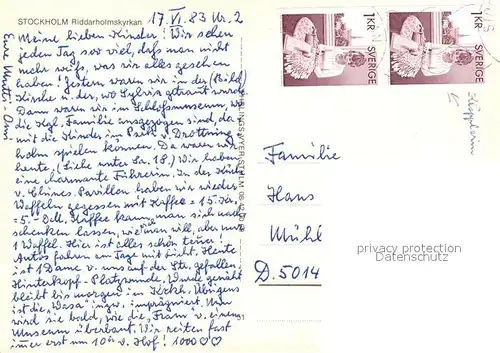 STOCKHOLM Riddarholmskyrkan
17.VI.83 Nr. 2
Meine lieben Kinder! Wir sehen
jeden Tag so viel, daß man nicht
mehr weiß, was wir alles gesehen
haben! Gestern waren wir in der (Bild)
Kirche u. der, wo Sylvia getraut wurde.
Dann waren wir im Schloßmuseum, wo
die Kgl. Familie ausgezogen sind, da-
mit die Kinder im Park v. Drottning
holm spielen können. Da waren wir
heute, (Liebe unter Ca. 18.) Wir haben
eine charmante Führerin. In der Küche
v. Chines. Pavillon haben wir wieder
Waffeln gegessen mit Kaffee = 15.- Kr.
= 5.- DM. Kaffee kann man sich nach-
schenken lassen, wie man will, aber nur
1 Waffel. Hier ist alles schön teuer!
Autos fahren am Tag mit Licht. Heute
ist 1 Dame v. uns auf der Str. gefallen.
Hinterkopf-Platzwunde. Wurde genäht
bleibt bis morgen im Krkh. Übrigens
ist die "Wasa" imprägniert. Nun
wird sie bald, wie die "Fram" v. einem
Museum überbaut. Wir reiten fast
immer erst um 10h v. Hof! 1000
Eure Mutti-Omi
1 KR SVERIGE
1 KR SVERIGE
Familie
Hans
Mühl
D. 5014
privacy protection
Datenschutz